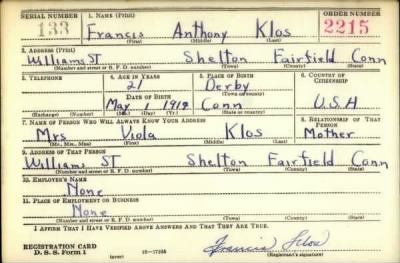 SERIAL NUMBER 1. NAME (Print) ORDER NUMBER
133 Francis Anthony Klos 2215
(First) (Middle) (Last)
2. ADDRESS (Print)
Williams ST Shelton Fairfield Conn
(Number and street or R. F. D. number) (Town) (County) (State)
3. TELEPHONE 4. AGE IN YEARS 5. PLACE OF BIRTH 6. COUNTRY OF CITIZENSHIP
21 Derby
(Town or county)
DATE OF BIRTH
May 1 1919 Conn U.S.A
(Exchange) (Number) (Mo.) (Day) (Yr.) (State or country)
7. NAME OF PERSON WHO WILL ALWAYS KNOW YOUR ADDRESS 8. RELATIONSHIP OF THAT PERSON
Mrs Viola Klos Mother
(Mr., Mrs., Miss) (First) (Middle) (Last)
9. ADDRESS OF THAT PERSON
Williams ST Shelton Fairfield Conn
(Number and street or R. F. D. number) (Town) (County) (State)
10. EMPLOYER'S NAME
None
11. PLACE OF EMPLOYMENT OR BUSINESS
None
(Number and street or R. F. D. number) (Town) (County) (State)
I AFFIRM THAT I HAVE VERIFIED ABOVE ANSWERS AND THAT THEY ARE TRUE.
REGISTRATION CARD
D. S. S. Form 1 (over) 16—17105 Francis Klos
(Registrant's signature)